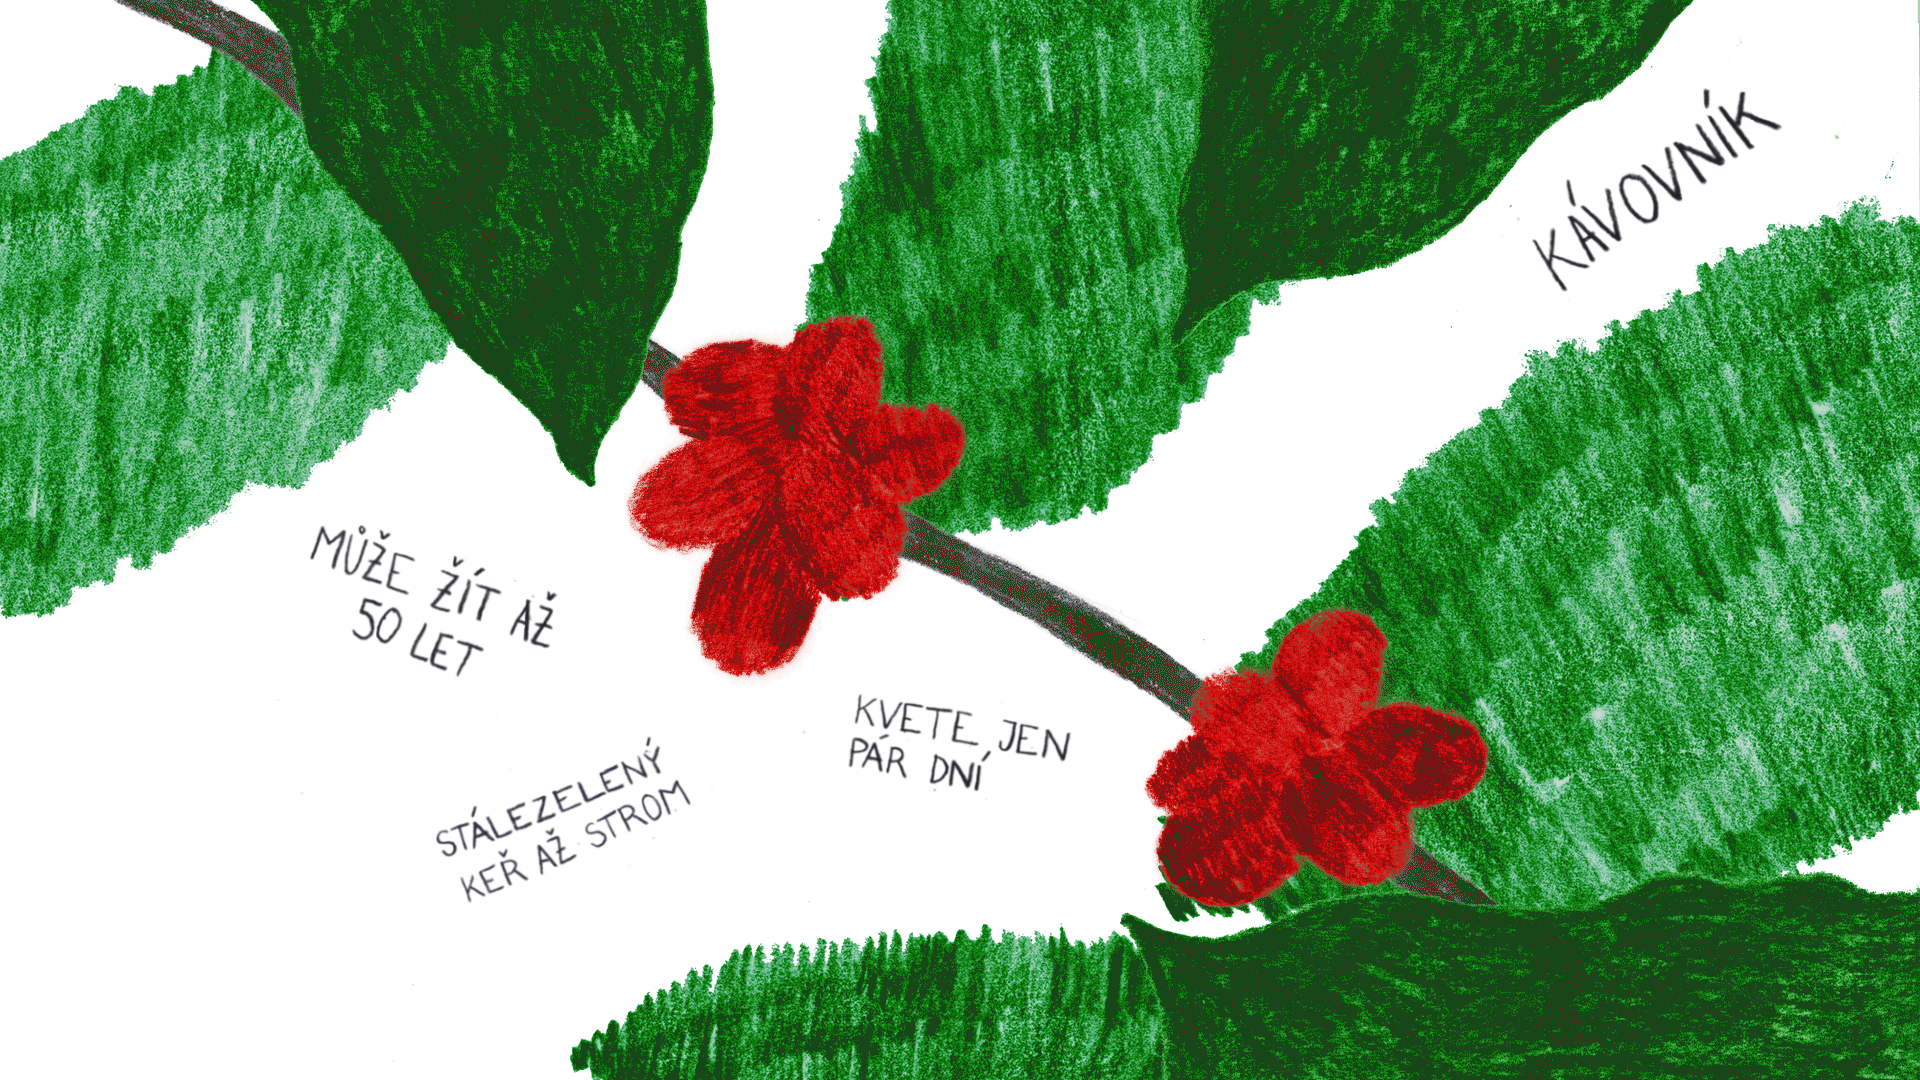 KÁVOVNÍK
MŮŽE ŽÍT AŽ
50 LET
KVETE JEN
PÁR DNÍ
STÁLEZELENÝ
KEŘ AŽ STROM